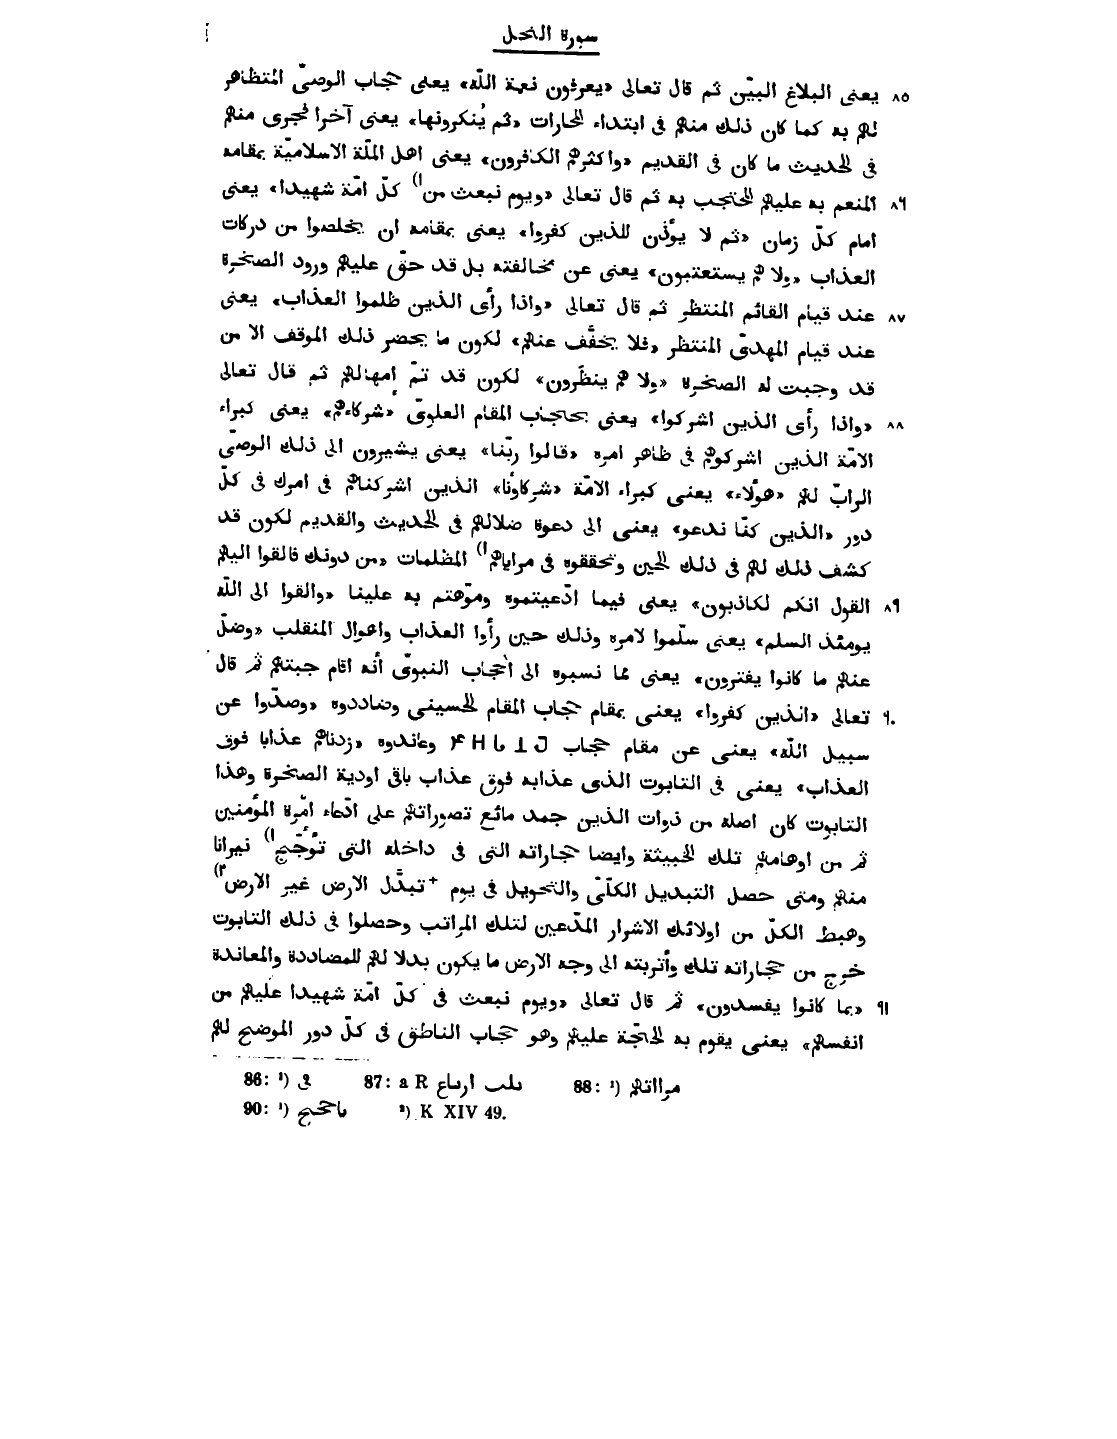 سورة النحل
٨٥ يعنى البلاغ البيّن ثم قال تعالى «يعرفون نعمة اللّه» يعنى حجاب الوصىّ المتظاهر
لهم به كما كان ذلك منهم فى ابتداء الحارات «ثم يُنكرونها» يعنى آخرا فجرى منهم
فى الحديث ما كان فى القديم «واكثرهم الكافرون» يعنى اهل الملّة الاسلاميّة بمقامه
٨٦ المنعم به عليهم المحتجب به ثم قال تعالى «ويوم نبعث من¹) كلّ امّة شهيدا» يعنى
امام كلّ زمان «ثم لا يوٴذن للذين كفروا» يعنى بمقامه ان يخلصوا من دركات
العذاب «ولا هم يستعتبون» يعنى عن مخالفته بل قد حقّ عليهم ورود الصخرة
٨٧ عند قيام القائم المنتظر ثم قال تعالى «واذا رأى الذين ظلموا العذاب» يعنى
عند قيام المهدىّ المنتظر «فلا يخفَّف عنهم» لكون ما يحضر ذلك الموقف الا من
قد وجبت له الصخرة «ولا هم ينظَرون» لكون قد تمّ إمهالهم ثم قال تعالى
٨٨ «واذا رأى الذين اشركوا» يعنى بحجاب المقام العلوىّ «شركاءهم» يعنى كبراء
الامّة الذين اشركوهم فى ظاهر امره «قالوا ربّنا» يعنى يشيرون الى ذلك الوصىّ
الرابّ لهم «هوٴلاء» يعنى كبراء الامّة «شركاوٴنا» الذين اشركناهم فى امرك فى كلّ
دور «الذين كنّا ندعو» يعنى الى دعوة ضلالهم فى الحديث والقديم لكون قد
كشف ذلك لهم فى ذلك الحين وتحققوه فى مراياهم¹) المظلمات «من دونك فالقوا اليهم
٨٩ القول انكم لكاذبون» يعنى فيما ادّعيتموه وموّهتم به علينا «والقوا الى اللّه
يومئذ السلم» يعنى سلّموا لامره وذلك حين رأوا العذاب واهوال المنقلب «وضلّ
عنهم ما كانوا يفترون» يعنى مما نسبوه الى الحجاب النبوىّ أنه اقام جبتهم ثم قال
٩٠ تعالى «الذين كفروا» يعنى بمقام حجاب المقام الحسينى وضاددوه «وصدّوا عن
سبيل اللّه» يعنى عن مقام حجاب وعاندوه «زدناهم عذابا فوق
العذاب» يعنى فى التابوت الذى عذابه فوق عذاب باقى اودية الصخرة وهذا
التابوت كان اصله من ذوات الذين جمد مائع تصوراتهم على ادّعاء امّرة الموٴمنين
ثم من اوهامهم تلك الخبيثة وايضا حجاراته التى فى داخله التى توٴجّج¹) نيرانا
منهم ومتى حصل التبديل الكلّىّ والتحويل فى يوم + تبدَّل الارض غير الارض²)
وهبط الكلّ من اولائك الاشرار المدّعين لتلك المراتب وحصلوا فى ذلك التابوت
خرج من حجاراته تلك وأتربته الى وجه الارض ما يكون بدلا لهم للمضاددة والمعاندة
٩١ «بما كانوا يفسدون» ثم قال تعالى «ويوم نبعث فى كلّ امّة شهيدا عليهم من
انفسهم» يعنى يقوم به الحجّة عليهم وهو حجاب الناطق فى كلّ دور الموضح لهم
86: ¹) فى 87: a R ىلىب ارىاع 88: ¹) مرااتهم
90: ¹) ²) K XIV 49.